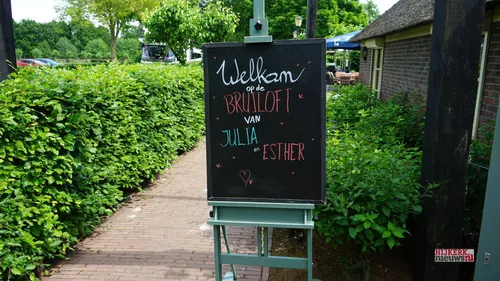 Welkom
op de
BRUILOFT
VAN
JULIA
en
ESTHER
NIJKERK
nieuws.nl